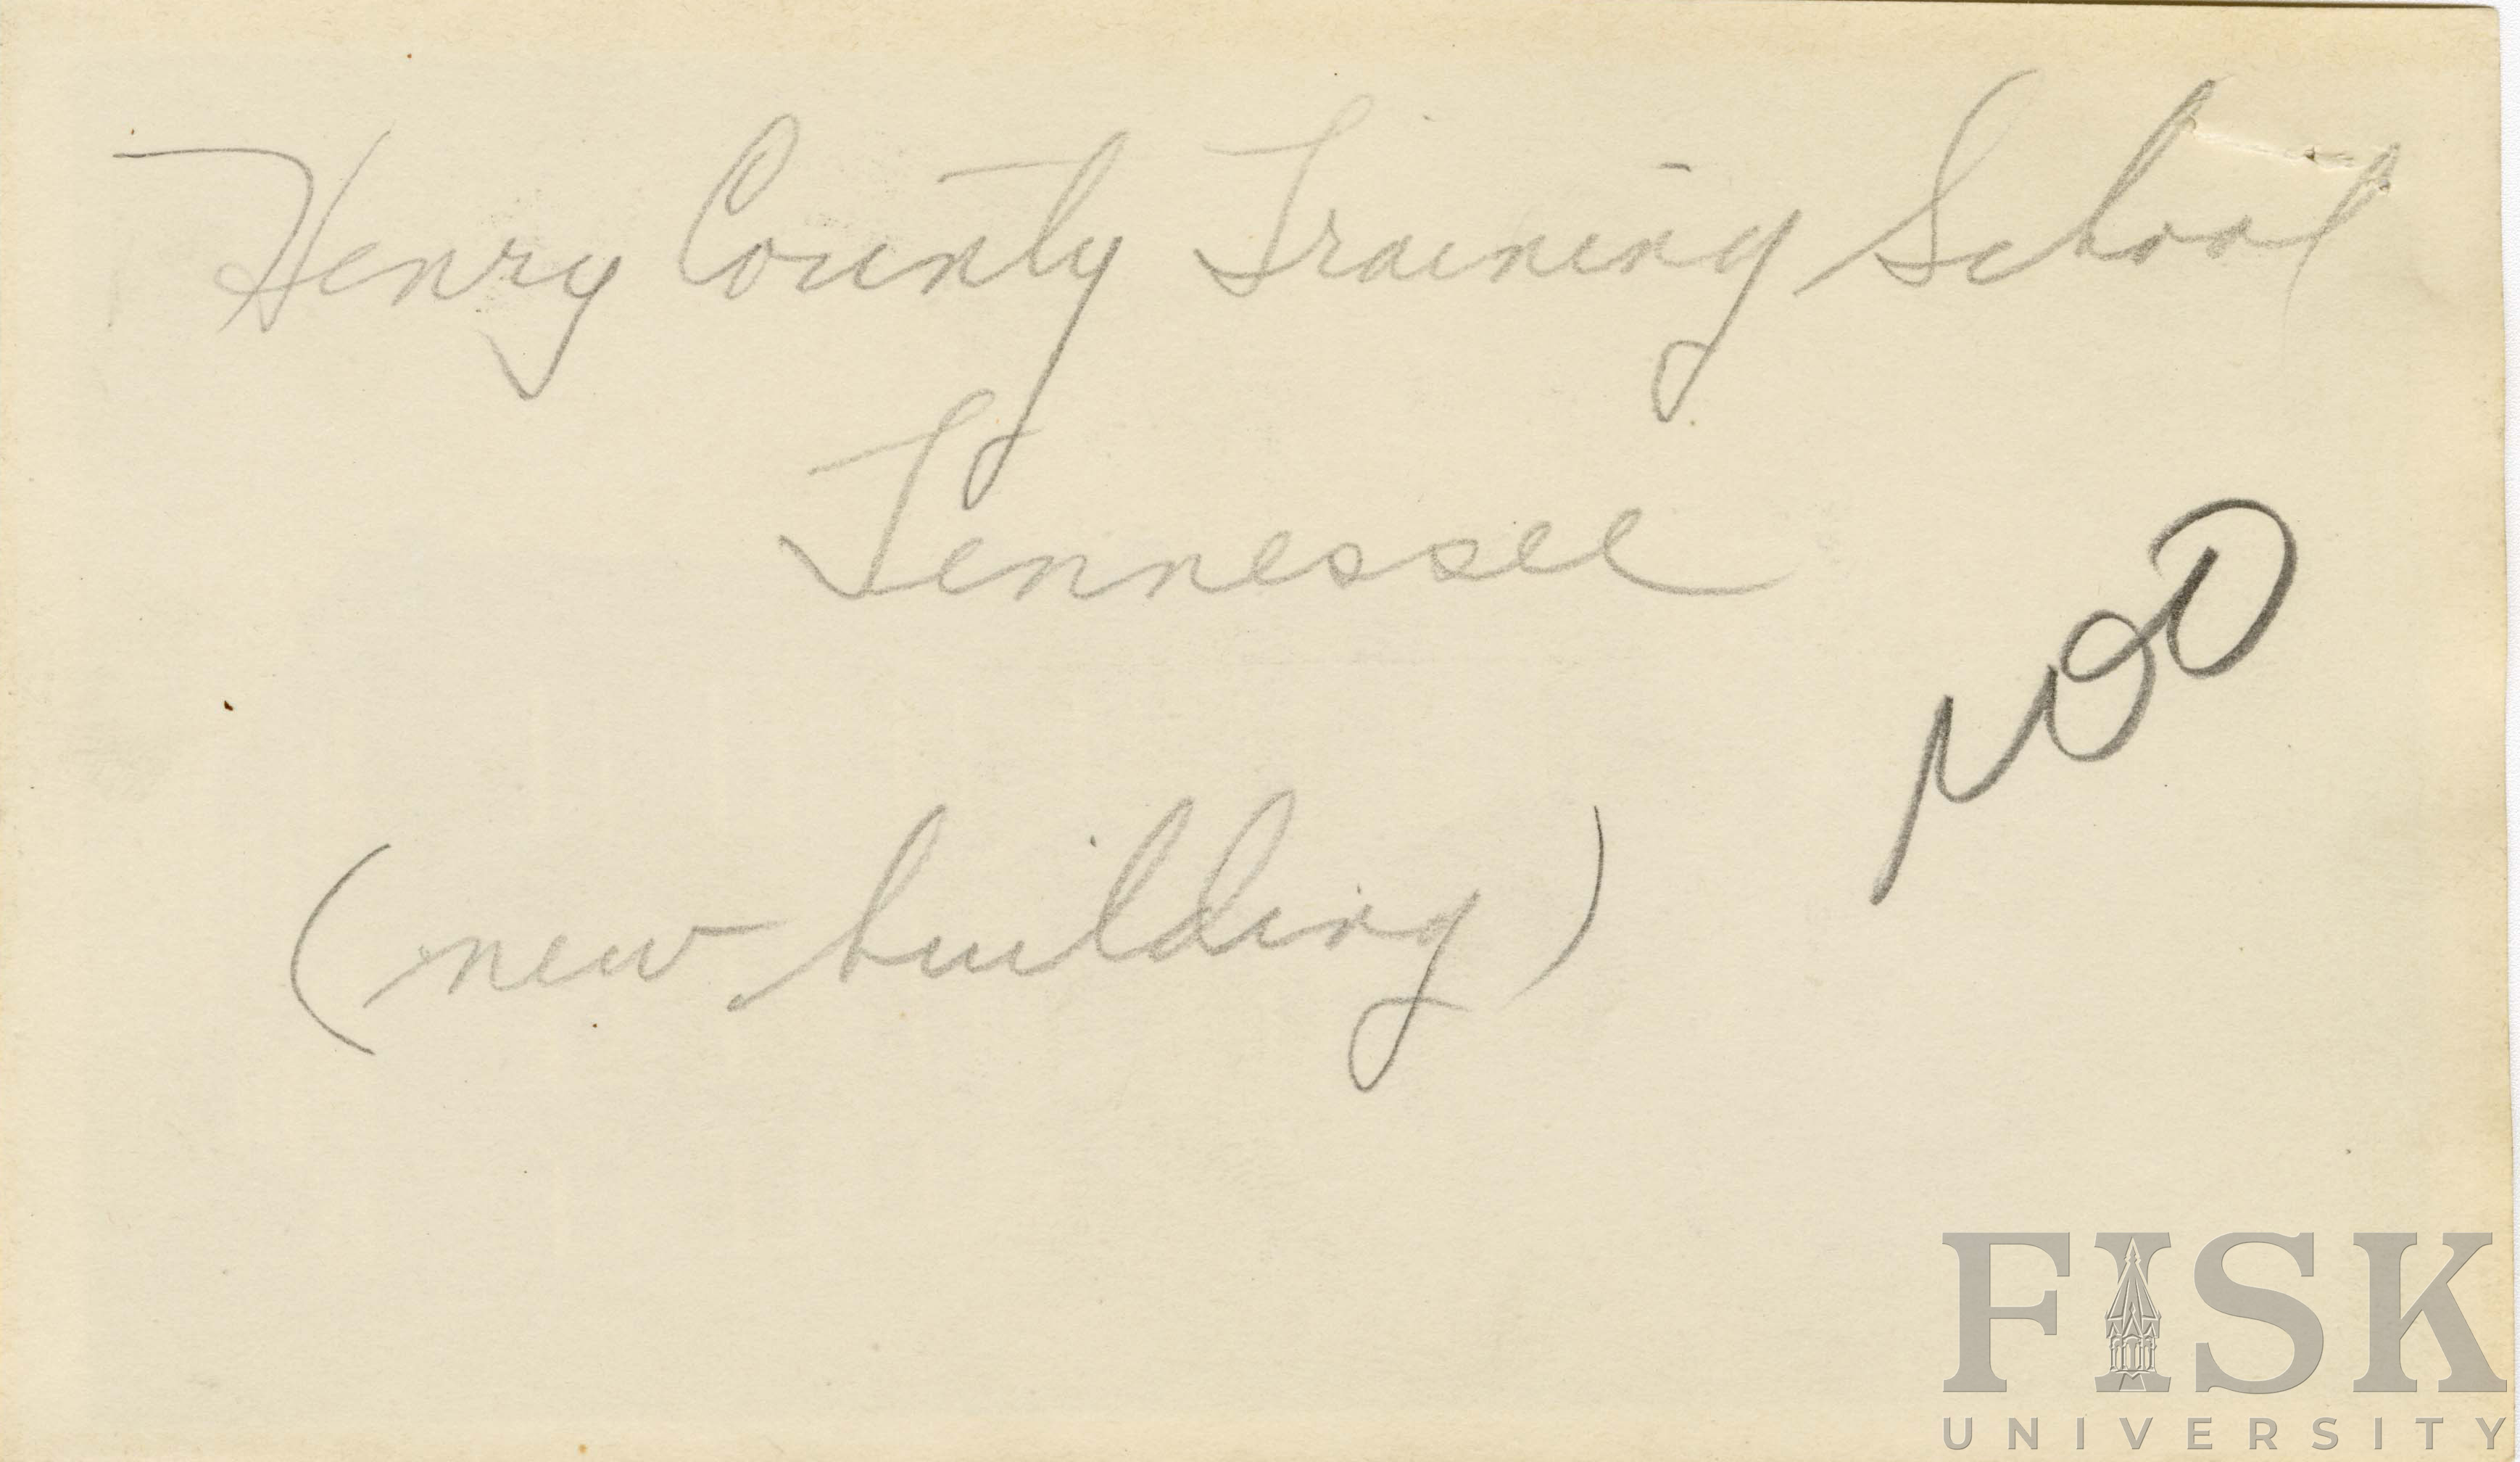 Henry County Training School
Tennessee
(new building)
FISK
UNIVERSITY